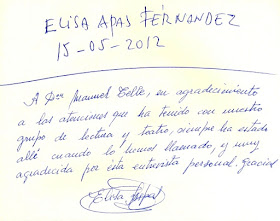 ELISA APAS FÉRNANDEZ
15-05-2012
A Don Manuel Tello, en agradecimiento
a las atenciones que ha tenido con nuestro
grupo de lectura y teatro, siempre ha estado
allí cuando lo hemos llamado, y muy
agradecida por ésta entrevista personal. Gracias
Elisa Apas